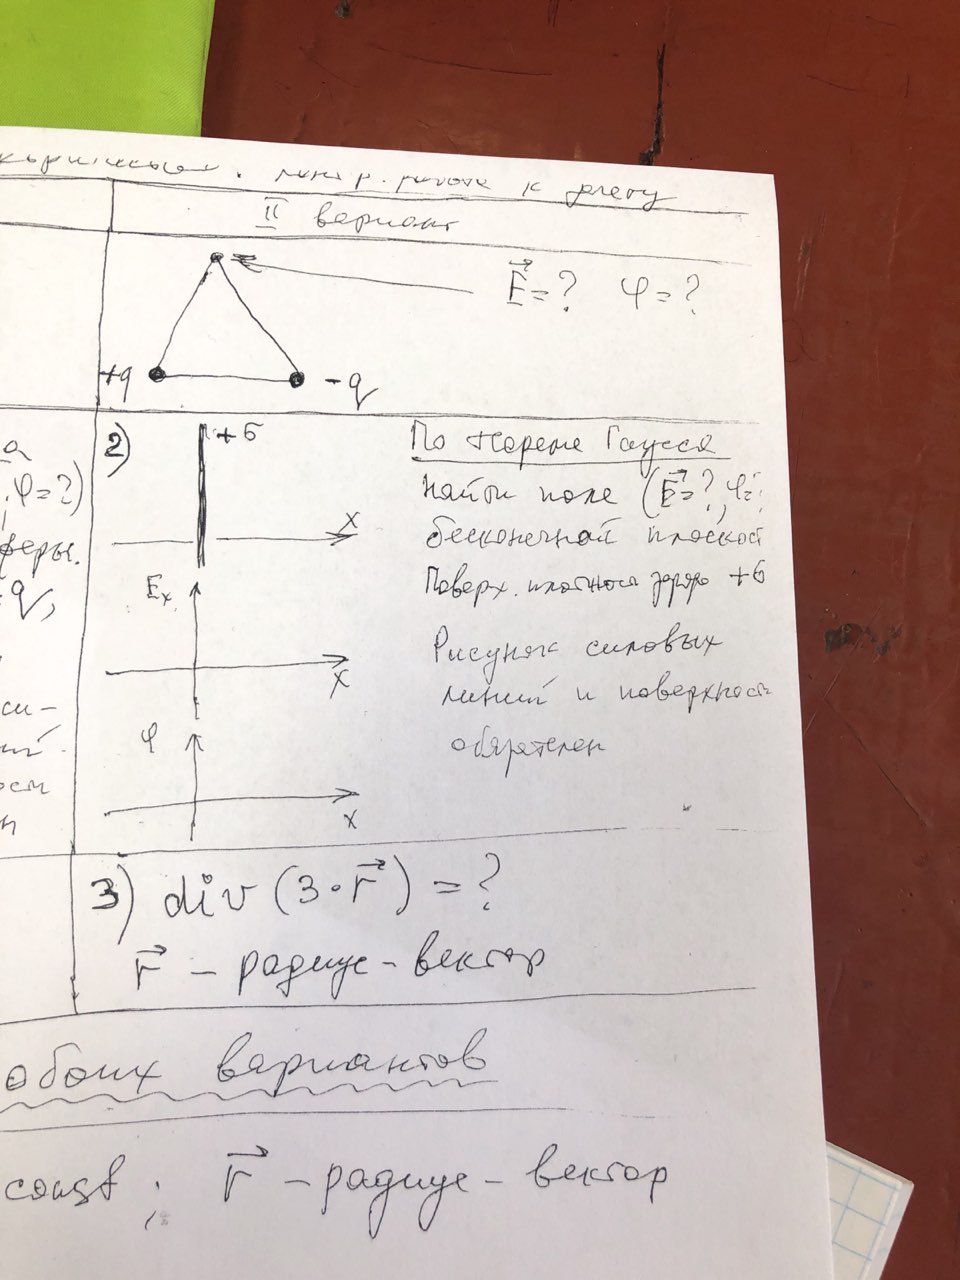 к зачету
II вариант
E = ? φ = ?
+q - q
а
, φ=?)
феры.
q,
си-
2) +б
X
Ex
X
φ
x
По теореме Гаусса
найти поле (E=?, φ=?
бесконечной плоскост
Поверх. плотность заряда +б
Рисунок силовых
линий и поверхност
обязателен
3) div (3·r) = ?
r - радиус-вектор
обоих вариантов
const ; r - радиус - вектор